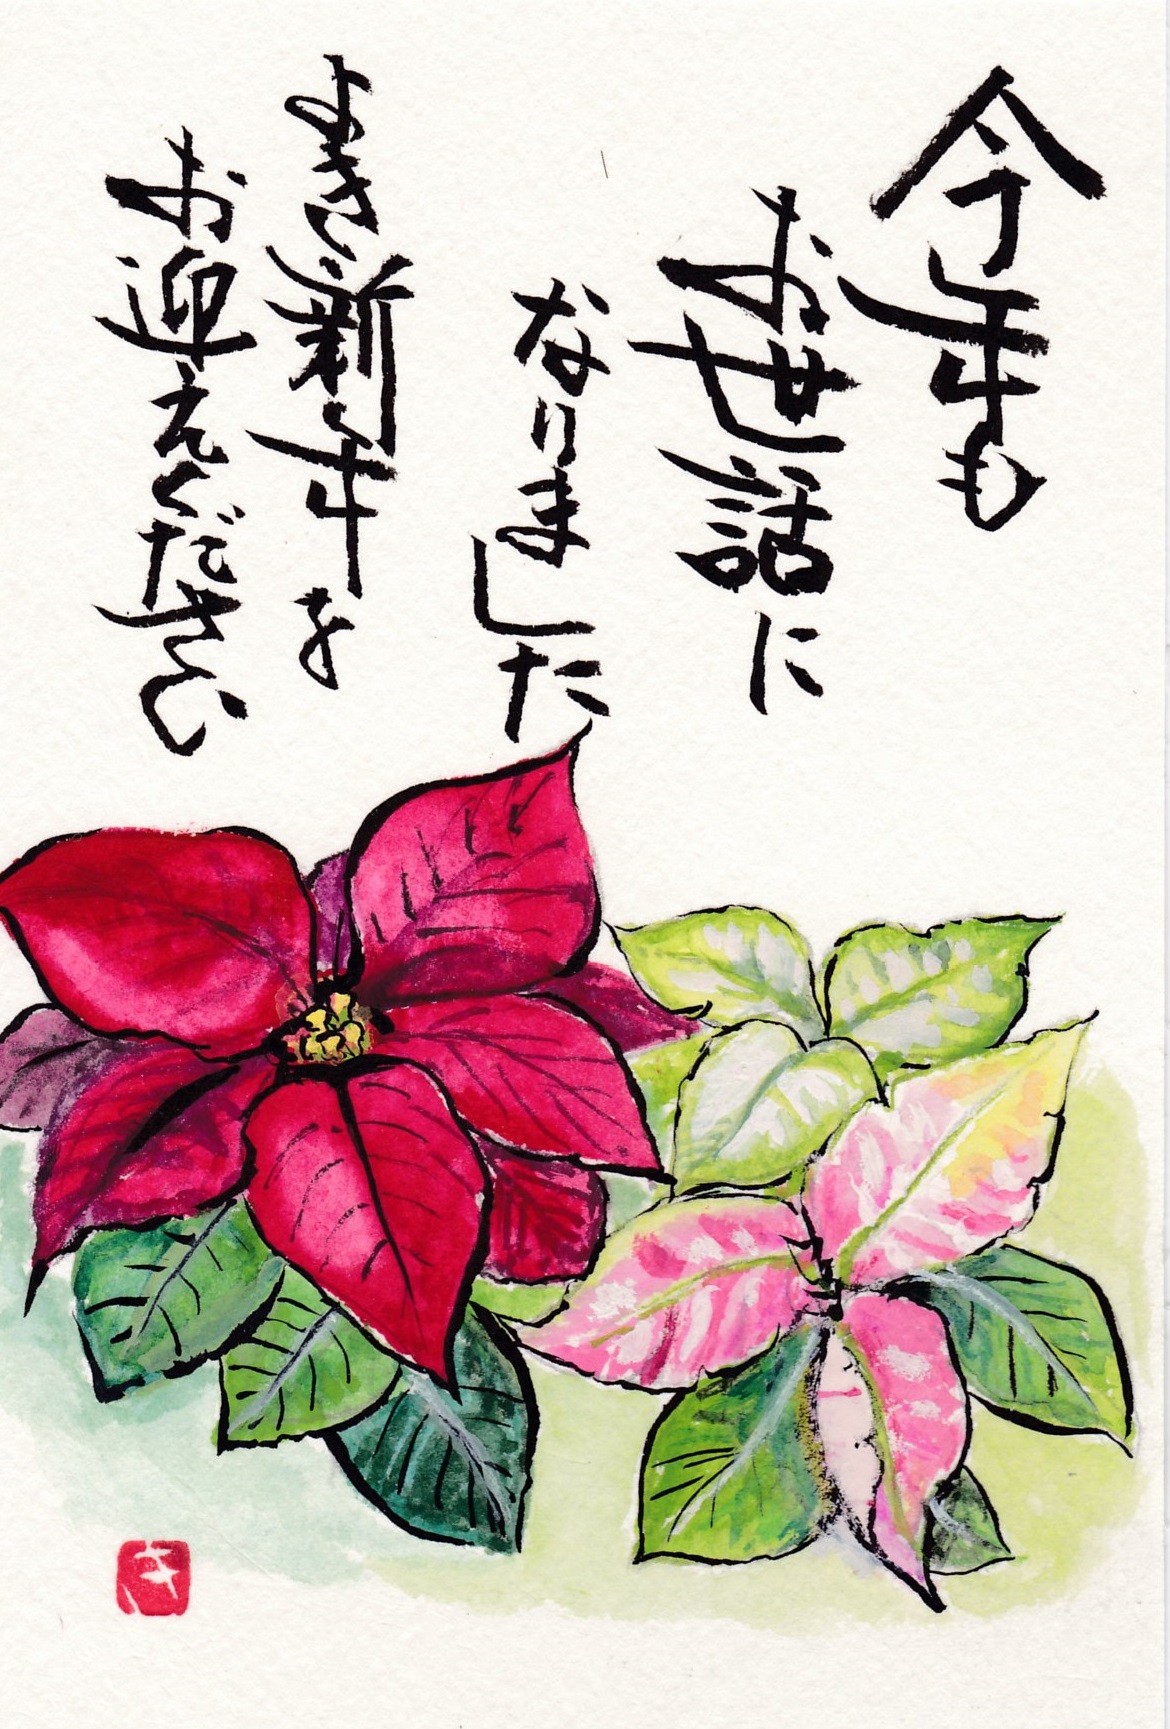 今年も
お世話に
なりました
よき新年を
お迎えください